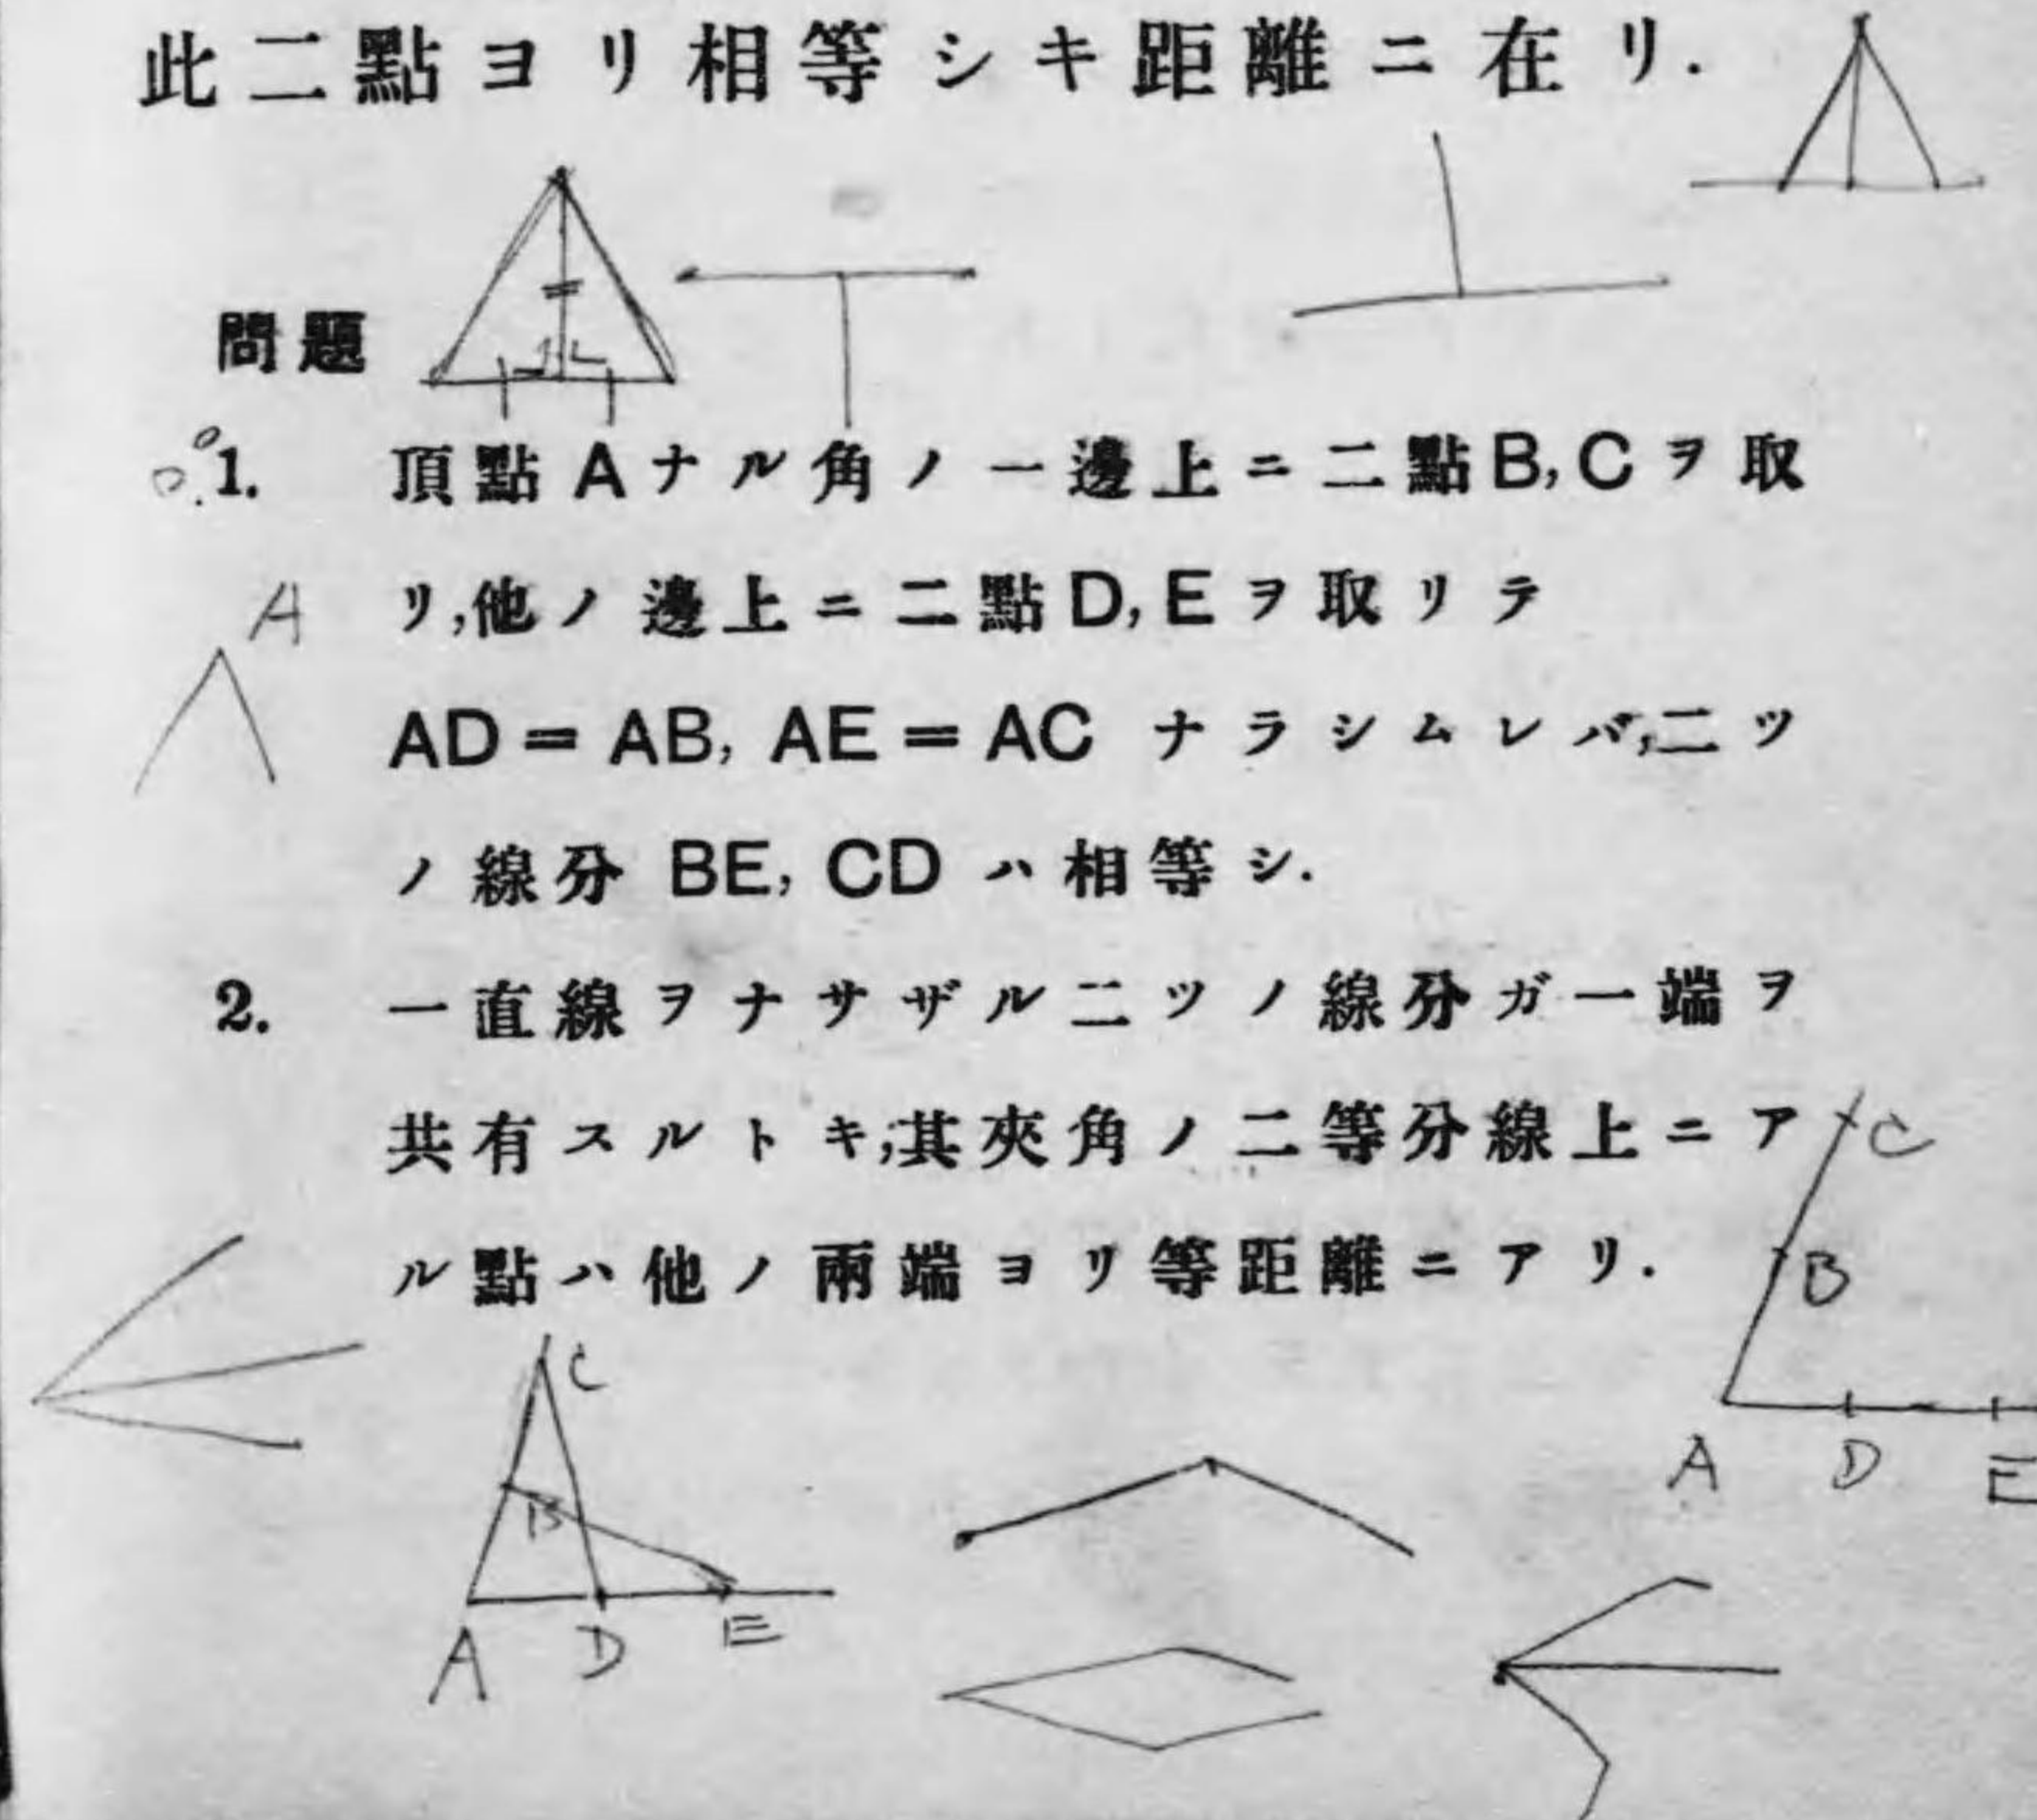 此二點ヨリ相等シキ距離ニ在リ.
問題
1. 頂點Aナル角ノ一邊上ニ二點B,Cヲ取
リ,他ノ邊上ニ二點D,Eヲ取リテ
A
AD = AB, AE = AC ナラシムレバ,二ツ
ノ線分 BE, CD ハ相等シ.
2. 一直線ヲナサザル二ツノ線分ガ一端ヲ
共有スルトキ,其夾角ノ二等分線上ニア
C
ル點ハ他ノ兩端ヨリ等距離ニアリ.
B
C
A D E
B
A D E